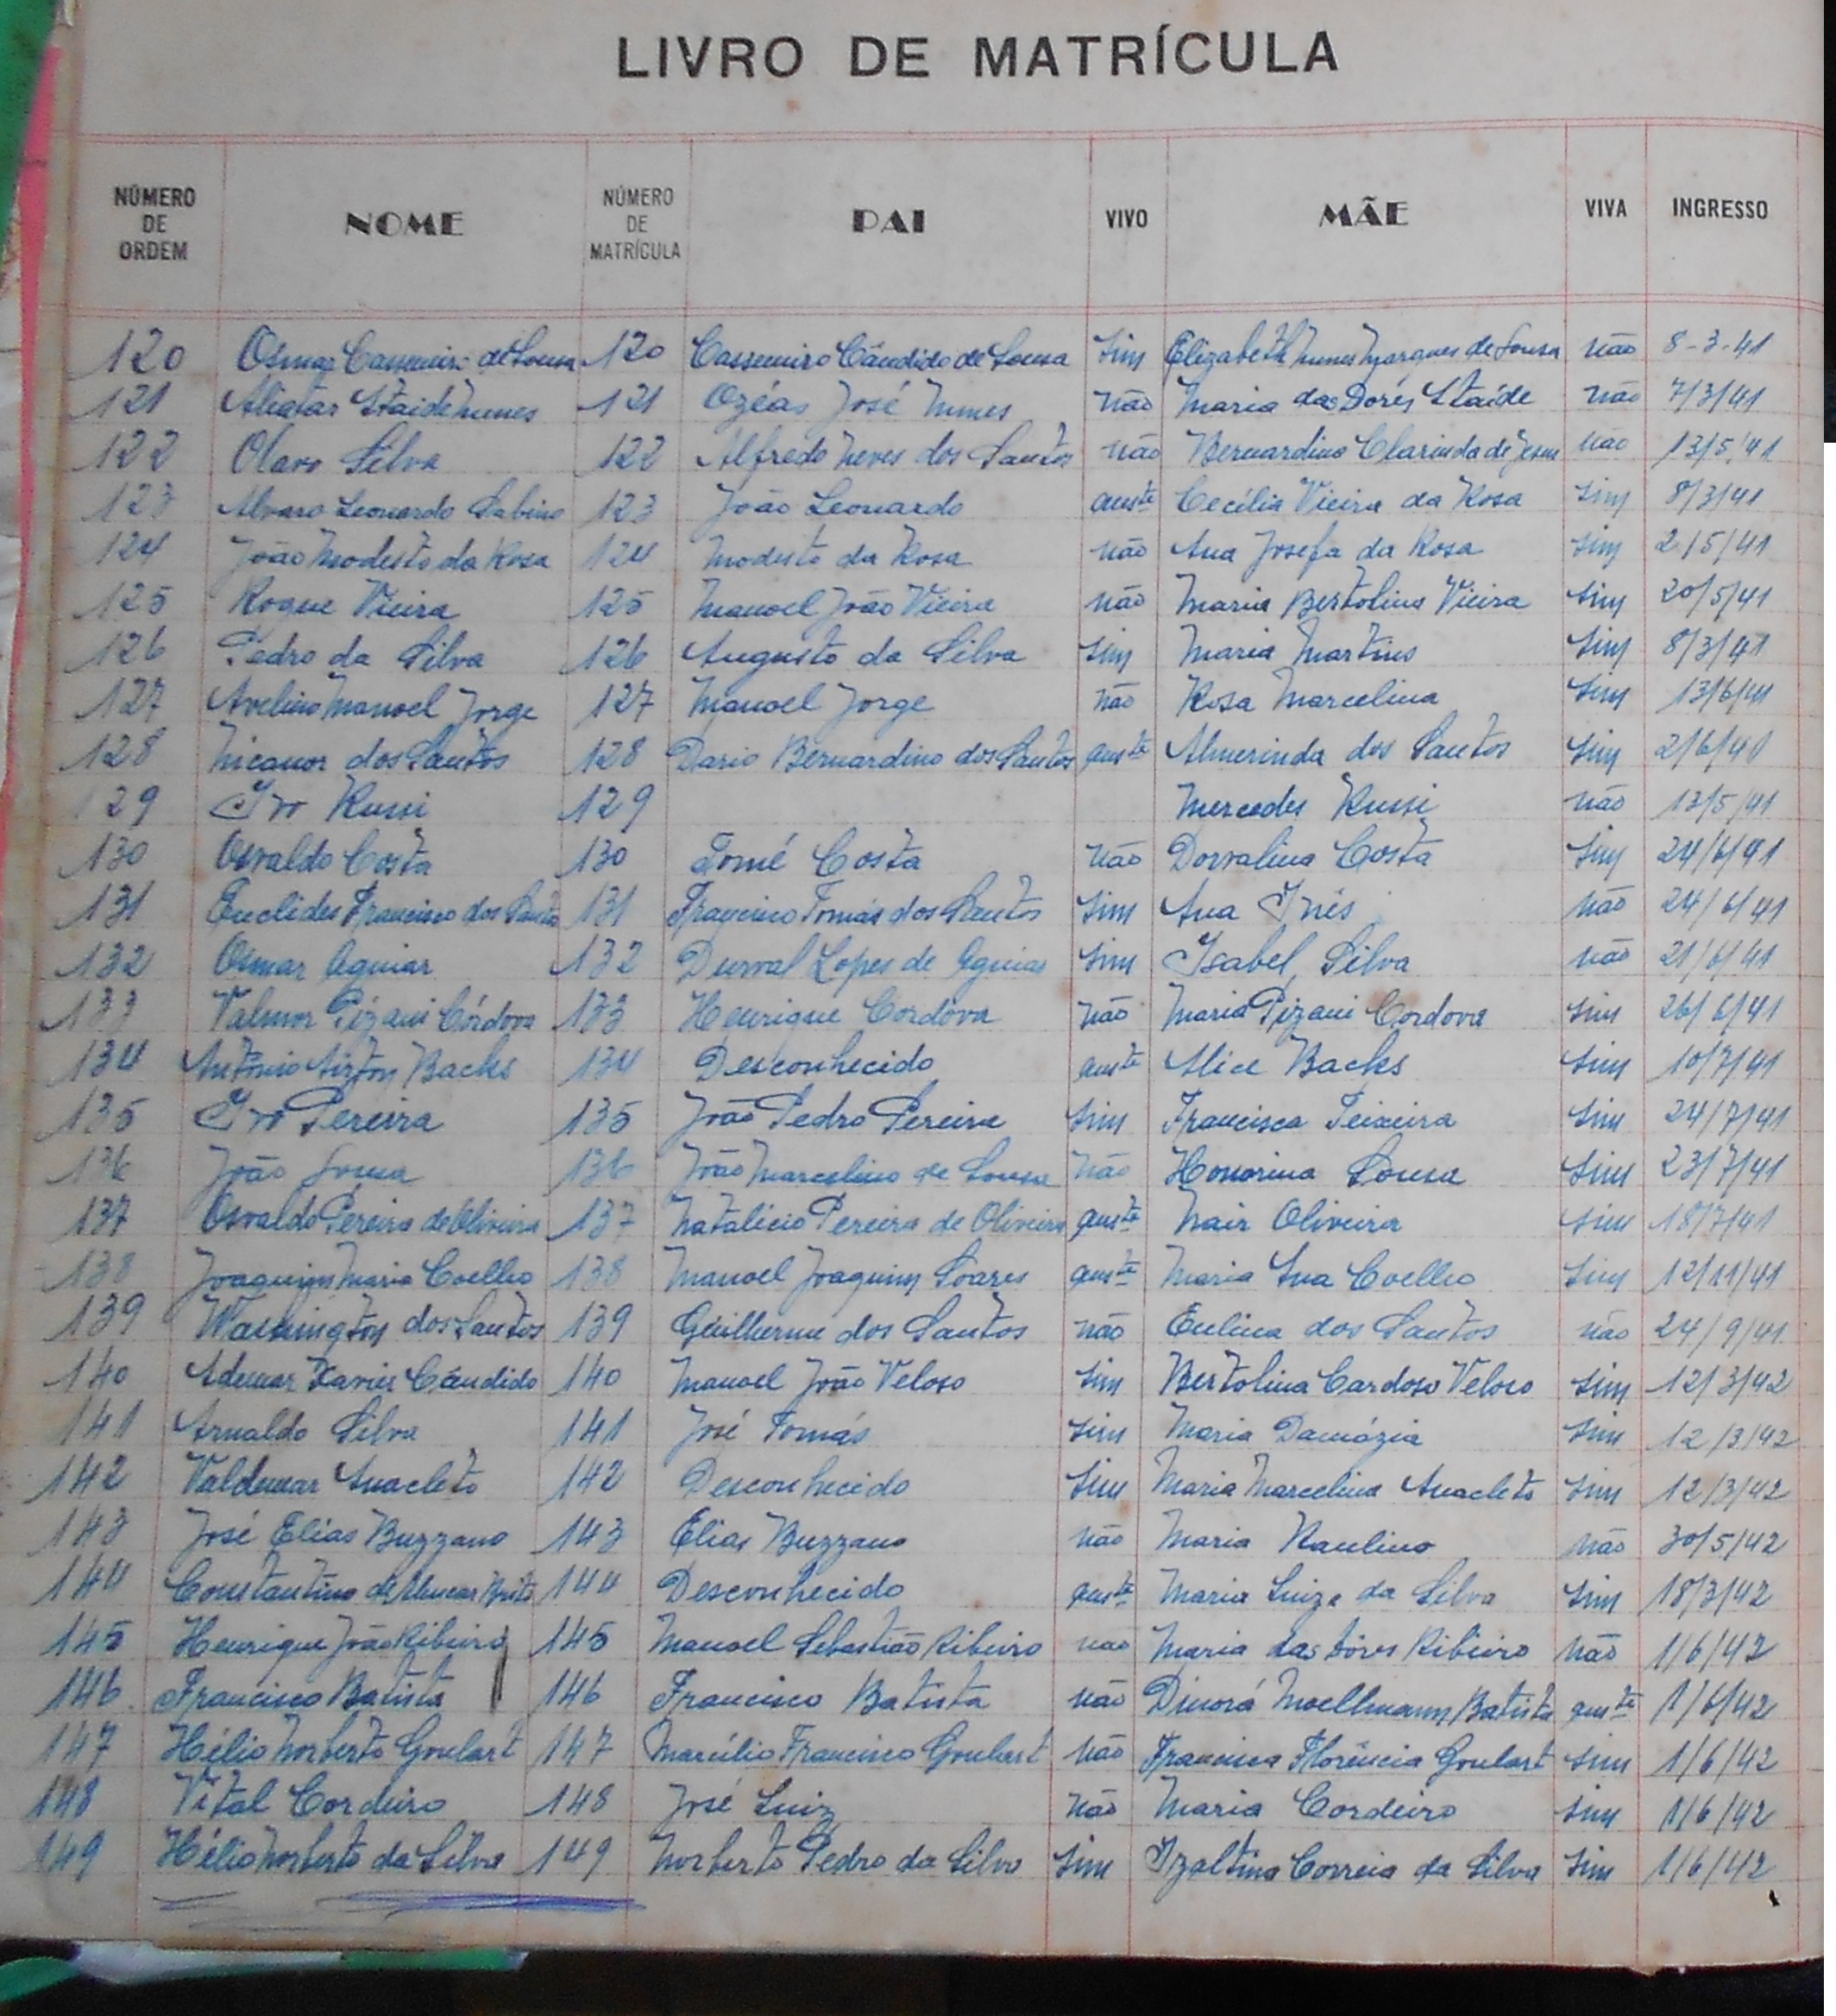 LIVRO DE MATRÍCULA
NÚMERO DE ORDEM NOME NÚMERO DE MATRÍCULA PAI VIVO MÃE VIVA INGRESSO
120 Osmar Cassemiro de Sousa 120 Cassemiro Cândido de Sousa sim Elizabeth Nunes Marques de Sousa não 8-3-41
121 Aliatar Staide Nunes 121 Ozéas José Nunes não Maria das Dores Staide não 7/3/41
122 Olavo Silva 122 Alfredo Neves dos Santos não Bernardina Clarinda de Jesus não 13/5/41
123 Alvaro Leonardo Sabino 123 João Leonardo auste Cecília Vieira da Rosa sim 8/3/41
124 João Modesto da Rosa 124 Modesto da Rosa não Ana Josefa da Rosa sim 2/5/41
125 Roque Vieira 125 Manoel João Vieira não Maria Bertolina Vieira sim 20/5/41
126 Pedro da Silva 126 Augusto da Silva sim Maria Martins sim 8/3/41
127 Avelino Manoel Jorge 127 Manoel Jorge não Rosa Marcelina sim 13/6/41
128 Nicanor dos Santos 128 Dario Bernardino dos Santos auste Almerinda dos Santos sim 2/6/41
129 Ivo Russi 129 Mercedes Russi não 13/5/41
130 Osvaldo Costa 130 Tomé Costa não Dorvalina Costa sim 24/6/41
131 Euclides Francisco dos Santos 131 Francisco Tomás dos Santos sim Ana Inês não 24/6/41
132 Osmar Aguiar 132 Durval Lopes de Aguiar sim Isabel Silva não 21/6/41
133 Valmor Pizani Córdova 133 Henrique Cordova não Maria Pizani Cordova sim 26/6/41
134 Antônio Airton Backs 134 Desconhecido auste Alice Backs sim 10/7/41
135 Ivo Pereira 135 João Pedro Pereira sim Francisca Teixeira sim 24/7/41
136 João Sousa 136 João Marcelino de Sousa não Honorina Sousa sim 23/7/41
137 Osvaldo Pereira de Oliveira 137 Natalício Pereira de Oliveira auste Nair Oliveira sim 18/7/41
138 Joaquim Maria Coelho 138 Manoel Joaquim Soares auste Maria Ana Coelho sim 12/11/41
139 Washington dos Santos 139 Guilherme dos Santos não Eulina dos Santos não 24/9/41
140 Ademar Xavier Cândido 140 Manoel João Veloso sim Bertolina Cardoso Veloso sim 12/3/42
141 Arnaldo Silva 141 José Tomás sim Maria Damázia sim 12/3/42
142 Valdemar Anacleto 142 Desconhecido sim Maria Marcelina Anacleto sim 12/3/42
143 José Elias Buzzano 143 Elias Buzzano não Maria Raulino não 30/5/42
144 Constantino de Alencar Brito 144 Desconhecido auste Maria Luiza da Silva sim 18/3/42
145 Henrique João Ribeiro 145 Manoel Sebastião Ribeiro não Maria das Dores Ribeiro não 1/6/42
146 Francisco Batista 146 Francisco Batista não Dinorá Moellmann Batista auste 1/6/42
147 Hélio Norberto Goulart 147 Marcílio Francisco Goulart não Francisca Florência Goulart sim 1/6/42
148 Vital Cordeiro 148 José Luiz não Maria Cordeiro sim 1/6/42
149 Hélio Norberto da Silva 149 Norberto Pedro da Silva sim Izaltina Correia da Silva sim 1/6/42